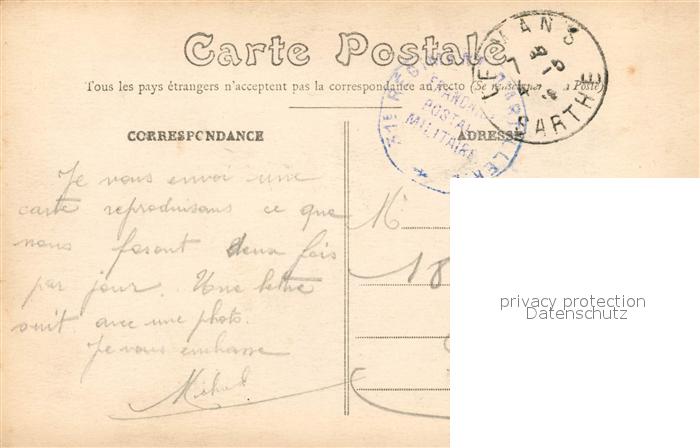 Carte Postale
Tous les pays étrangers n'acceptent pas la correspondance au recto (Se renseigner à la Poste)
CORRESPONDANCE
ADRESSE
LE MANS
SARTHE
POSTAL
MILITAIRE
Je vous envoi une
carte reproduisans ce que
nous fasont deux fois
par jour. Une lettre
suit avec une photo.
Je vous embrasse
Michel
M
18
privacy protection
Datenschutz